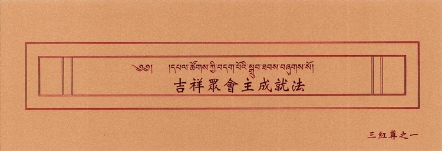 ༄༅། །དཔལ་ཚོགས་ཀྱི་བདག་པོའི་སྒྲུབ་ཐབས་བཞུགས་སོ།
吉祥眾會主成就法
三紅尊之一